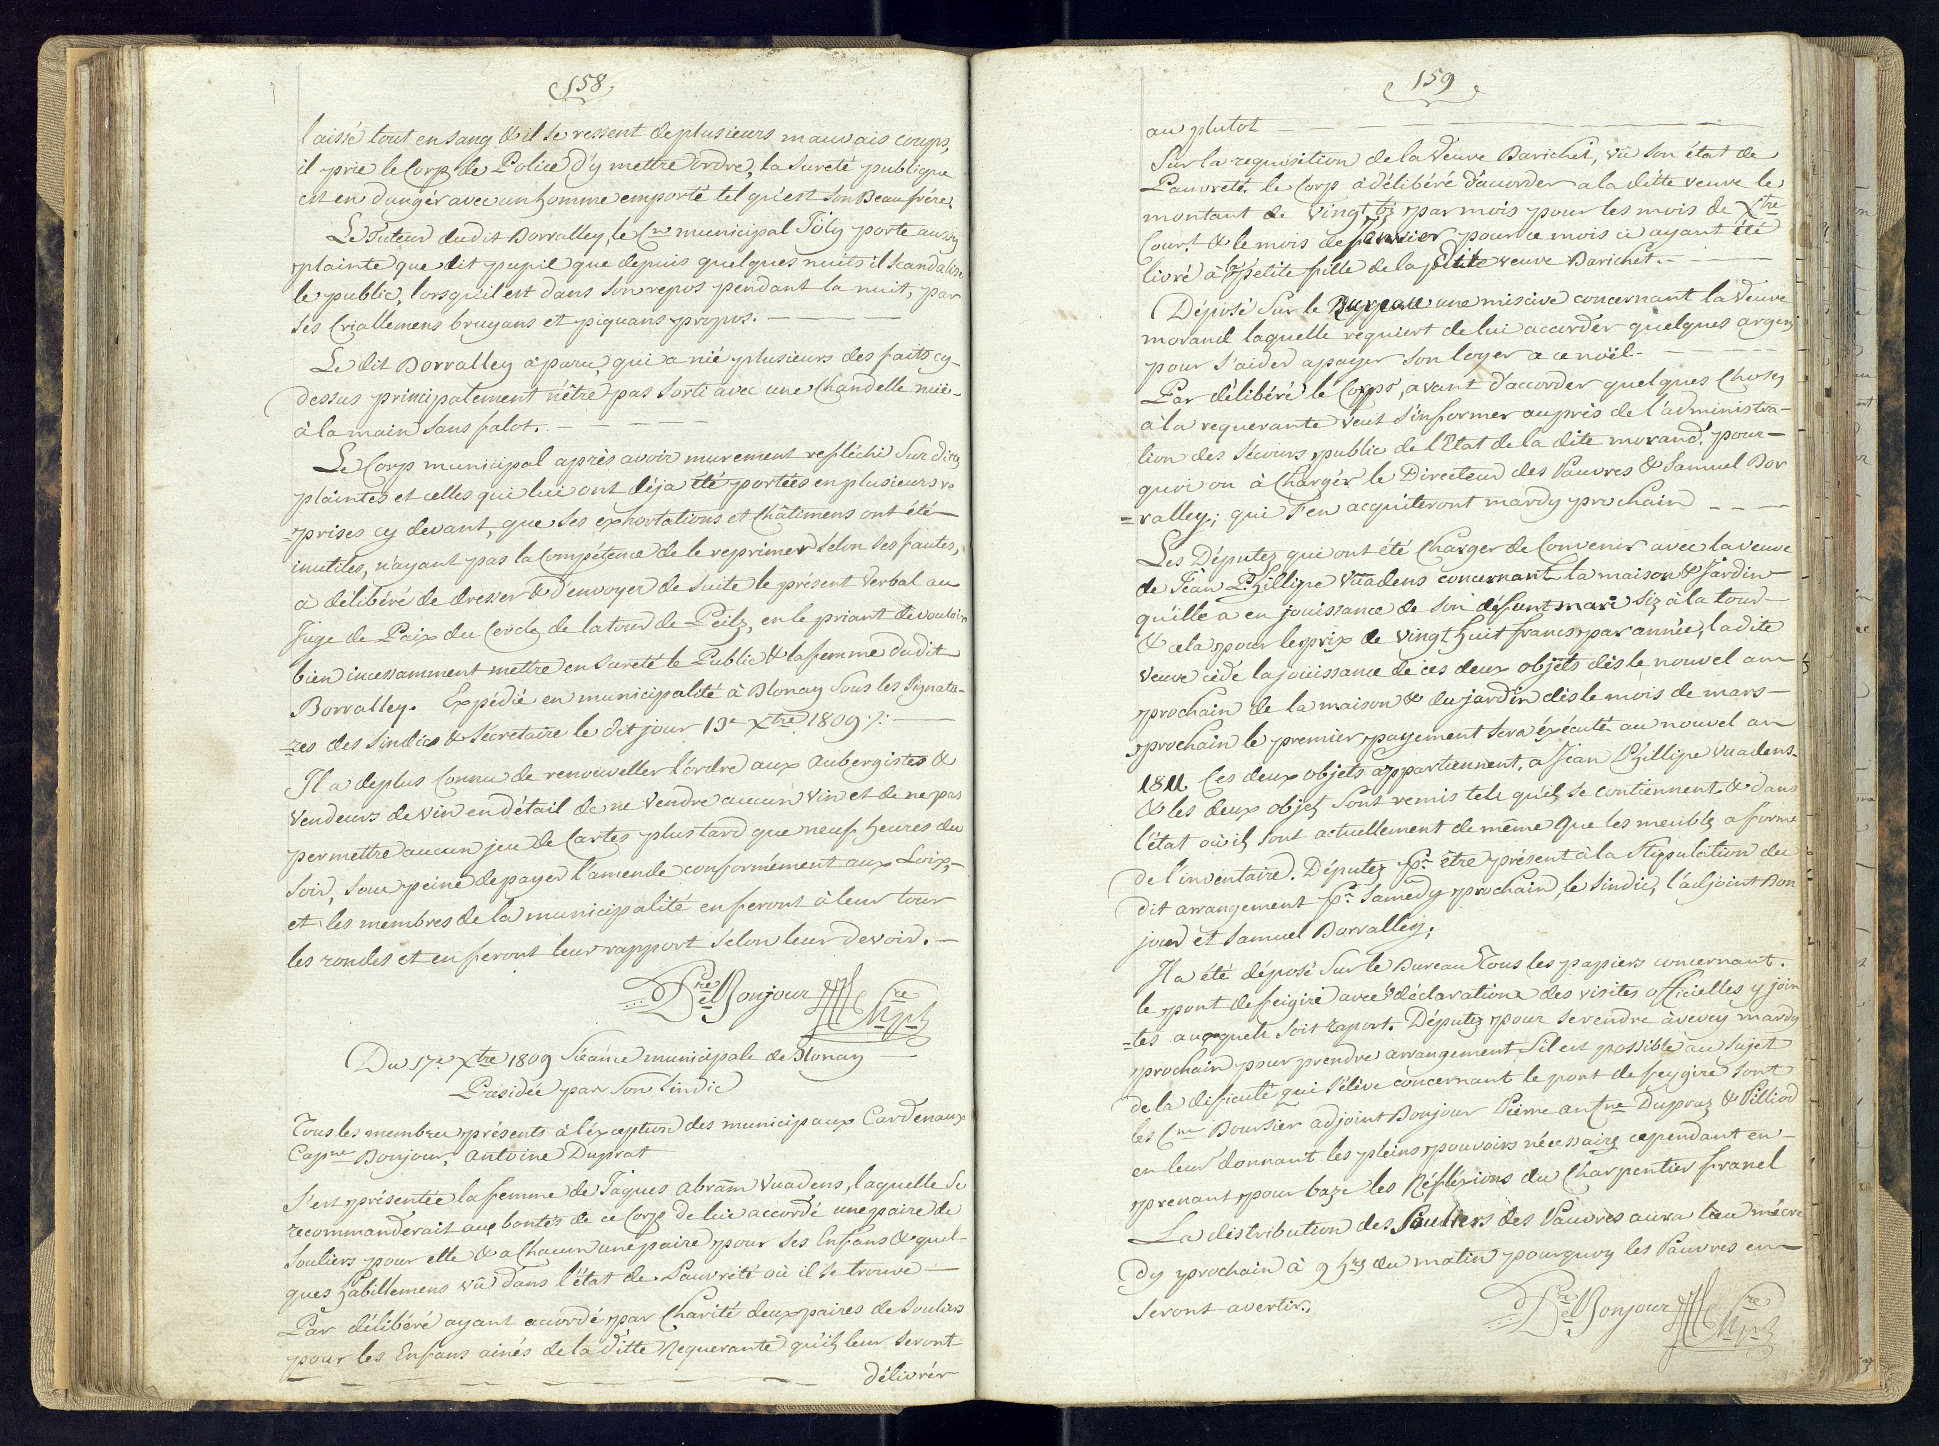 158
laissé tout en sang & il se ressent de plusieurs mauvais coups,
il prie le Corp de Police d'y mettre ordre, la sureté publique
est en dangér avec un homme emporté tel qu'est son Beaufrére.
Le Tuteur dudit Borralley, le Cen municipal Töly porte aussy
plainte que dit pupil que depuis quelques nuits il scandalise
le public, lorsqu'il est dans son repos pendant la nuit, par
ses Criallemens bruyans et piquans propos. —
Le dit Borralley à paru, qui a nié plusieurs des faits cy-
dessus principalement nêtre pas sorti avec une Chandelle nüe-
à la main sans falot. —
Le Corp municipal après avoir murement refléchi sur dites
plaintes et celles qui lui ont déja été portées en plusieurs re
=prises cy devant, que ses exhortations et Châtimens ont été
inutiles, n'ayant pas la Compétence de le reprimer selon ses fautes,
à délibéré de dresser & d'envoyer de suite le présent Verbal au
Juge de Paix du Cercle de la tour de Peilz, en le priant de vouloir
bien incessamment mettre en sureté le Public & la femme dudit
Borralley. Expédié en municipalité à Blonay sous les signatu-
=res des sindics & sécretaire le dit jour 13e Xbre 1809 ./. —
Il a deplus Connu de renouveller l'ordre aux aubergistes &
Vendeurs de vin en détail de ne vendre aucun vin et de ne pas
permettre aucun jeu de Cartes plus tard que neuf heures du
soir, sous peine de payer l'amende conformément aux Loix,
et les membres de la municipalité en feront à leur tour
les rondes et en feront leur rapport selon leur devoir. —
Bonjour
Du 17e Xbre 1809 Séance municipale de Blonay
Présidée par son sindic
Tous les membres présents à l'éxception des municipaux Cardenaux
Capne Bonjour, antoine Duprat
S'est présentée la femme de Jaques abram Vuadens, laquelle se
recommanderait aux bontés de ce Corp de lui accordé une paire de
souliers pour elle & a chacun une paire pour ses Enfans & quel-
ques habillemens vû dans l'état de Pauvreté où il se trouve —
Par délibéré ayant accordé par Charité deux paires de souliers
pour les Enfans ainés de la ditte Requerante qu'ils leur seront
délivrér
159
au plutot —
Sur la requisition de la Veuve Barichet, vû son état de
Pauvreté. le Corp à délibéré d'acorder a la ditte veuve le
montant de Vingt bz par mois pour les mois de Xbre
Court & le mois de Janvier pour ce mois ci ayant été
livré à la petite fille de la ditte veuve Barichet. —
Déposé sur le Bureau une miscive concernant la Veuve
morand laquelle requiert de lui accorder quelques argens
pour s'aider a payer son loyer a ce noël. —
Par délibéré le Corps, avant d'accorder quelques Choses
à la requerante veut s'informer auprès de l'administra-
tion des sécours public de l'Etat de la dite morand. pour-
quoi on à Chargér le Directeur des Pauvres & Samuel Bor
=ralley; qui s'en acquiteront mardy prochain —
Les Députez qui ont été Charger de Convenir avec la veuve
de Jéan Phillipe Vuadens concernant la maison & Jardin
qu'ille a en jouissance de son défunt mari siz à la tour
& cela pour le prix de vingt huit francs par année, la dite
veuve cède la jouissance de ces deux objets dès le nouvel an
prochain de la maison & du jardin dès le mois de mars —
prochain le premier payement sera éxécuté au nouvel an
1811 Ces deux objets appartiennent, a Jean Phillipe Vuadens.
& les deux objets sont remis tels qu'ils se contiennent & dans
l'état où ils sont actuellement de même que les meubles a forme
de l'inventaire. Députez pr être présent à la stipulation du
dit arrangement pr samedy prochain, le sindic, l'adjoint Bon
jour et Samuel Borralley.
Il a été déposé sur le Bureau tous les papiers concernant.
le pont de feigire avec déclaration des visites officielles y join
=tes auxquels soit raport. Députez pour se rendre à vevey mardy
prochain pour prendre arrangement, s'il est possible au sujet
de la dificulté qui s'élève concernant le pont de feygire sont
les Cens Boursier adjoint Bonjour Pierre antne Dupraz & Pilliod
en leur donnant les pleins pouvoirs nécessaires cependant en-
prenant pour baze les Réfléxions du Charpentier franel
La distribution des Souliers des Pauvres aura lieu mécre
dy prochain à 9 hres du matin pourquoy les Pauvres en
seront avertir.
Bonjour